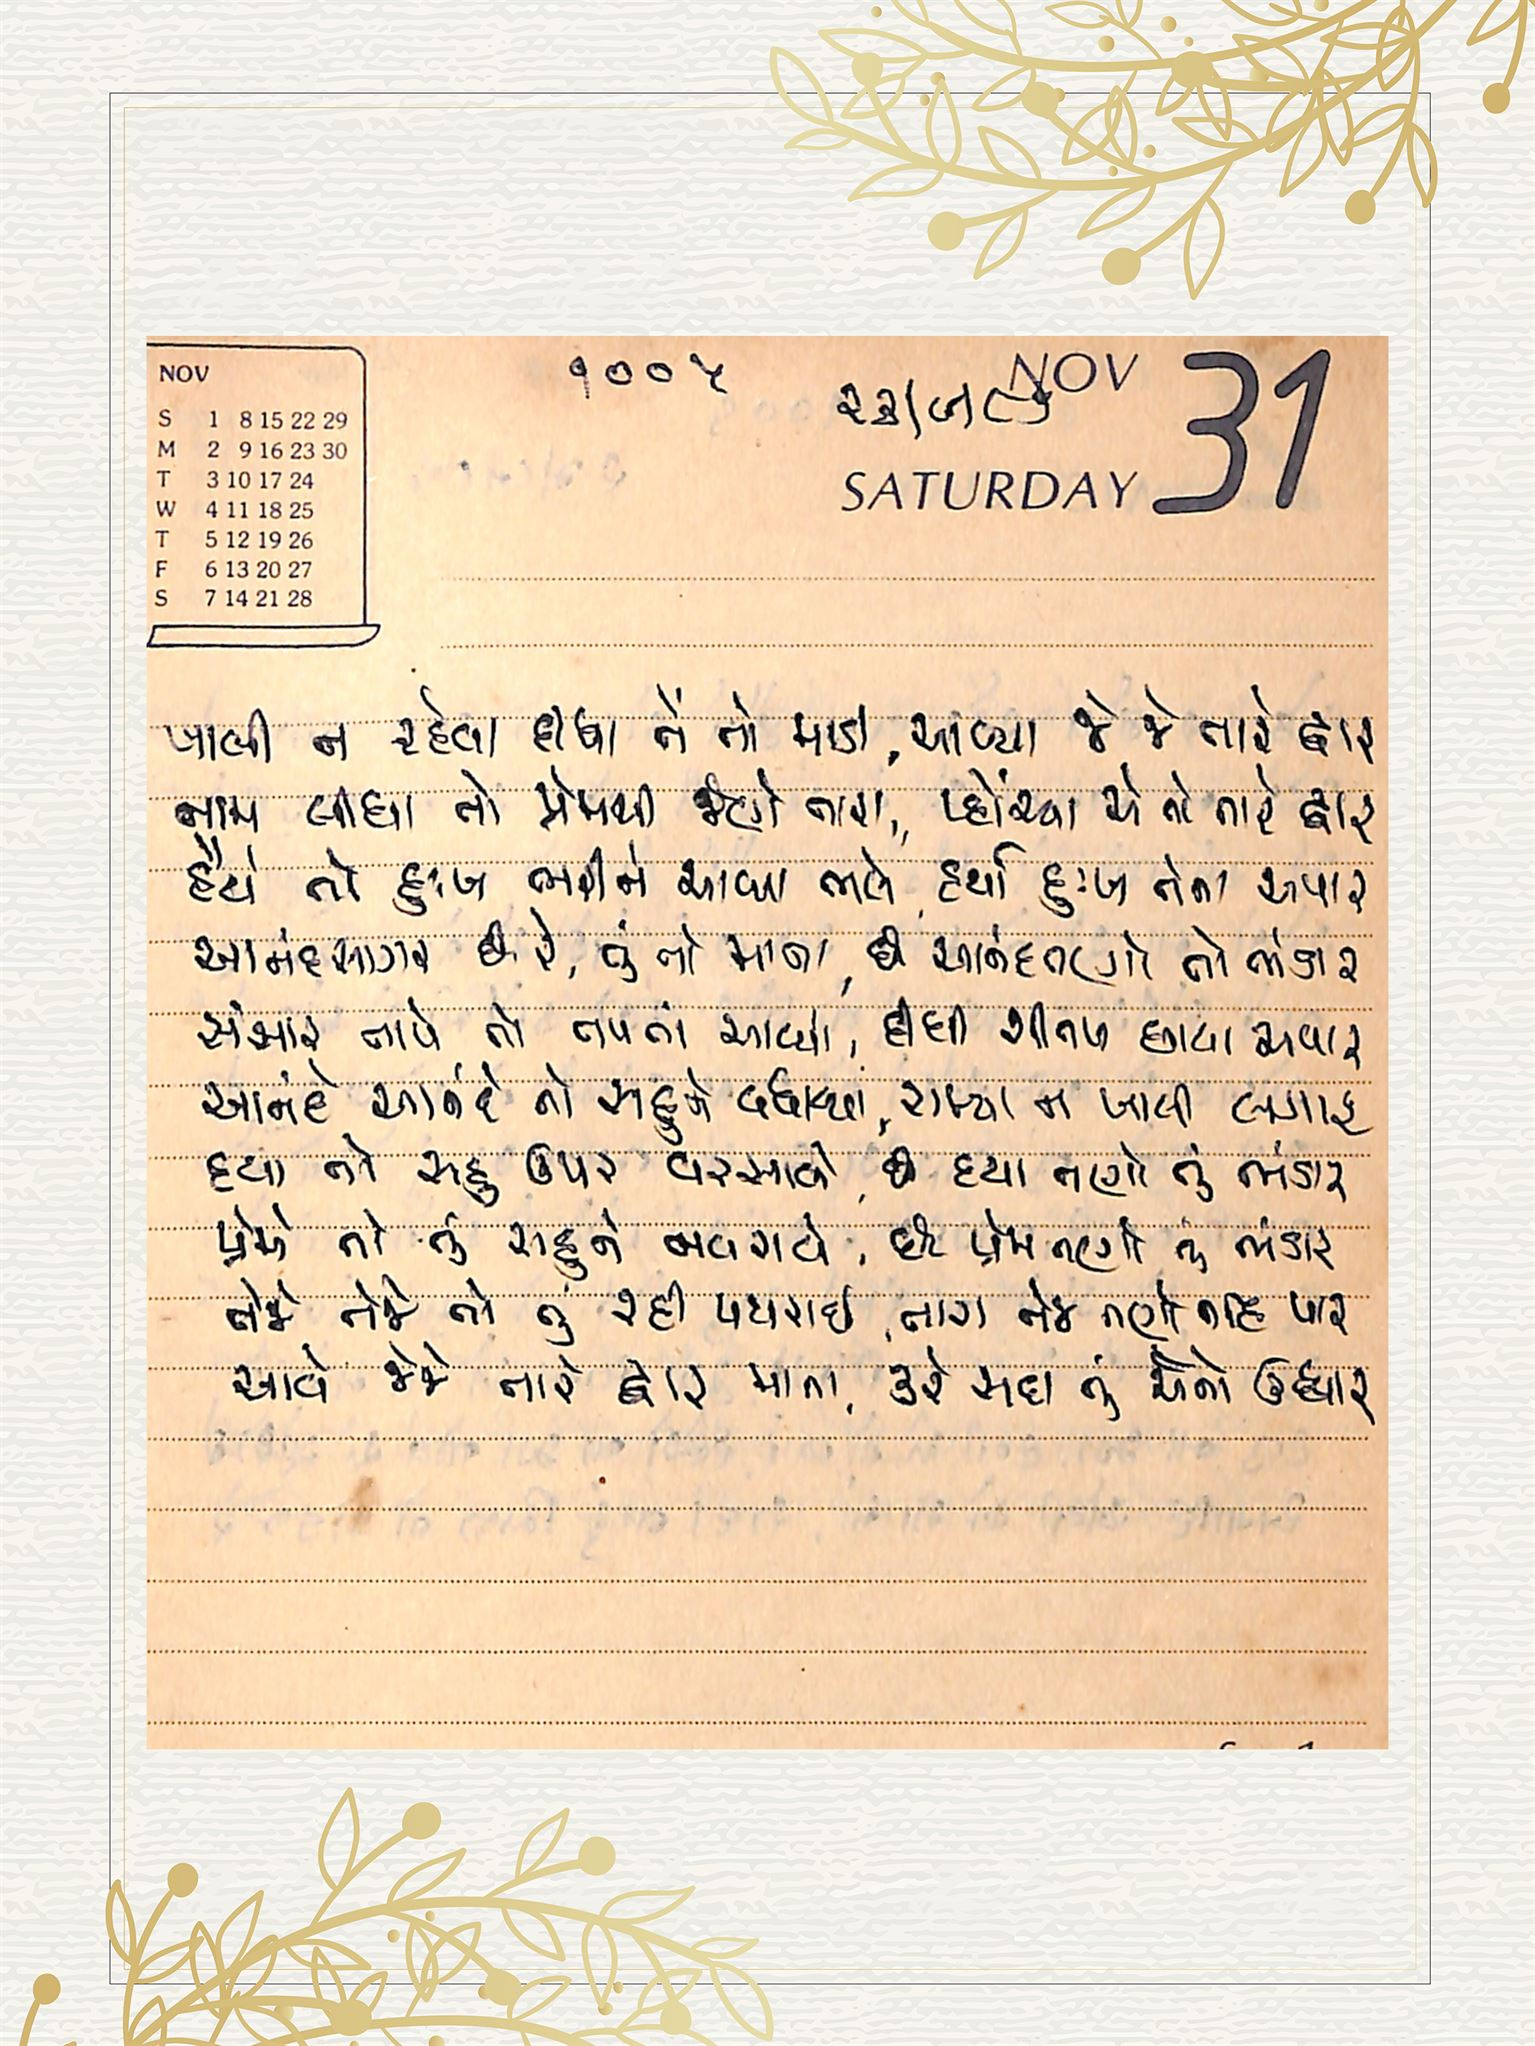 NOV
S 1 8 15 22 29
M 2 9 16 23 30
T 3 10 17 24
W 4 11 18 25
T 5 12 19 26
F 6 13 20 27
S 7 14 21 28
૧૦૦૫
NOV 31
SATURDAY
ખાલી ન રહેવા દીધા તેં તો માડી, આવ્યા જે જે તારે દ્વાર
નામ લીધા તો પ્રેમથી જેણે તારા, પ્હોંચ્યા એ તો તારે દ્વાર
હૈયે તો દુઃખ ભરીને આવ્યા ભલે, હર્યા દુઃખ તેના અપાર
આનંદસાગર છે રે, તું તો માતા, છે આનંદતણો તો ભંડાર
સંસાર તાપે તો તપતાં આવ્યા, દીધી શીતળ છાયા અપાર
આનંદે આનંદે તો સહુને વધાવ્યા, રાખ્યા ન ખાલી લગાર
દયા તો સહુ ઉપર વરસાવે, છે દયા તણો તું ભંડાર
પ્રેમે તો તું સહુને નવરાવે, છે પ્રેમ તણો તું ભંડાર
તેજે તેજે તો તું રહી પથરાઈ, તારા તેજ તણો નહિ પાર
આવે જેજે તારે દ્વાર માતા, કરે સદા તું એનો ઉદ્ધાર